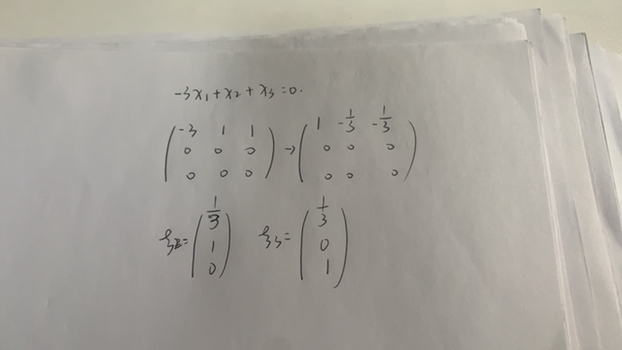 -3x₁+x₂+x₃=0.
(-3 1 1; 0 0 0; 0 0 0) → (1 -1/3 -1/3; 0 0 0; 0 0 0)
ξ₂=(1/3; 1; 0) ξ₃=(1/3; 0; 1)